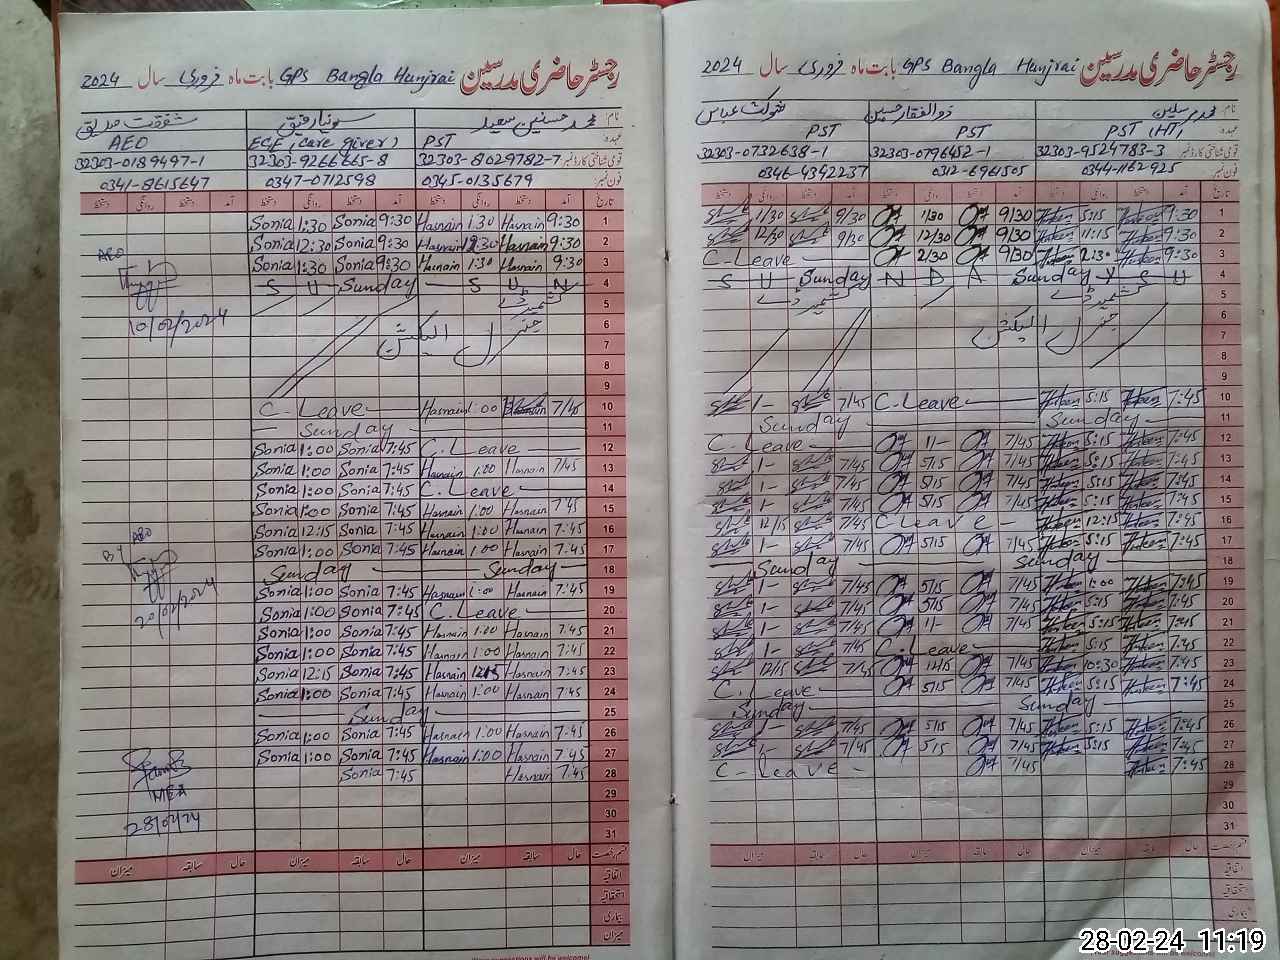 رجسٹر حاضری مدرسین GPS Bangla Hunjrai بابت ماہ فروری سال 2024
نام: محمد حسنین سعید سونیا رفیق شفقت صدیق
عہدہ: PST ECE (Care giver) AEO
قومی شناختی کارڈ نمبر 32303-8029782-7 32303-9266665-8 32303-0189497-1
فون نمبر: 0345-0135679 0347-0712598 0341-8615647
تاریخ آمد دستخط روانگی دستخط آمد دستخط روانگی دستخط آمد دستخط روانگی دستخط
Sonia 1:30 Sonia 9:30 Hasnain 1:30 Hasnain 9:30 1
Sonia 12:30 Sonia 9:30 Hasnain 12:30 Hasnain 9:30 2
AEO Sonia 1:30 Sonia 9:30 Hasnain 1:30 Hasnain 9:30 3
S U Sunday S U N 4
کشمیر ڈے 5
10/02/2024 جنرل الیکشن 6
7
8
9
C. Leave Hasnain 1:00 Hasnain 7/45 10
Sunday 11
Sonia 1:00 Sonia 7:45 C. Leave 12
Sonia 1:00 Sonia 7:45 Hasnain 1:00 Hasnain 7/45 13
Sonia 1:00 Sonia 7:45 C. Leave 14
Sonia 1:00 Sonia 7:45 Hasnain 1:00 Hasnain 7:45 15
AEO Sonia 12:15 Sonia 7:45 Hasnain 1:00 Hasnain 7:45 16
Sonia 1:00 Sonia 7:45 Hasnain 1:00 Hasnain 7:45 17
Sunday Sunday 18
Sonia 1:00 Sonia 7:45 Hasnain 1:00 Hasnain 7:45 19
20/02/2024 Sonia 1:00 Sonia 7:45 C. Leave 20
Sonia 1:00 Sonia 7:45 Hasnain 1:00 Hasnain 7:45 21
Sonia 1:00 Sonia 7:45 Hasnain 1:00 Hasnain 7:45 22
Sonia 12:15 Sonia 7:45 Hasnain 12:15 Hasnain 7:45 23
Sonia 1:00 Sonia 7:45 Hasnain 1:00 Hasnain 7:45 24
Sunday 25
Sonia 1:00 Sonia 7:45 Hasnain 1:00 Hasnain 7:45 26
Sonia 1:00 Sonia 7:45 Hasnain 1:00 Hasnain 7:45 27
Sonia 7:45 Hasnain 7:45 28
MEA 29
28/02/24 30
31
قسم رخصت حال سابقہ میزان حال سابقہ میزان حال سابقہ میزان
اتفاقیہ
استحقاقیہ
بیماری
میزان
رجسٹر حاضری مدرسین GPS Bangla Hunjrai بابت ماہ فروری سال 2024
نام: محمد سلین ذوالفقار حسین شوکت عباس
عہدہ: PST (HT) PST PST
قومی شناختی کارڈ نمبر 32303-9524783-3 32303-0796452-1 32303-0732638-1
فون نمبر: 0344-1162925 0312-6961505 0346-4342237
تاریخ آمد دستخط روانگی دستخط آمد دستخط روانگی دستخط آمد دستخط روانگی دستخط
1/30 9/30 1/30 9/30 5:15 9:30 1
12/30 9/30 12/30 9/30 11:15 9:30 2
C. Leave 2/30 9/30 2:30 9:30 3
S U Sunday N D A Sunday Y S U 4
کشمیر ڈے کشمیر ڈے 5
جنرل الیکشن 6
7
8
9
1- 7/45 C. Leave 5:15 7:45 10
Sunday Sunday 11
C. Leave 11- 7/45 5:15 7:45 12
1- 7/45 5/15 7/45 5:15 7:45 13
1- 7/45 5/15 7/45 5:15 7:45 14
1- 7/45 5/15 7/45 5:15 7:45 15
12/15 7/45 C. Leave 12:15 7:45 16
1- 7/45 5/15 7/45 5:15 7:45 17
Sunday Sunday 18
1- 7/45 5/15 7/45 1:00 7:45 19
1- 7/45 5/15 7/45 5:15 7:45 20
1- 7/45 11- 7/45 5:15 7:45 21
1- 7/45 C. Leave 5:15 7:45 22
12/15 7/45 12/15 7/45 10:30 7:45 23
C. Leave 5/15 7/45 5:15 7:45 24
Sunday Sunday 25
1- 7/45 5/15 7/45 5:15 7:45 26
1- 7/45 5/15 7/45 5:15 7:45 27
C. Leave 7/45 7:45 28
29
30
31
قسم رخصت حال سابقہ میزان حال سابقہ میزان حال سابقہ میزان
اتفاقیہ
استحقاقیہ
بیماری
میزان
28-02-24 11:19